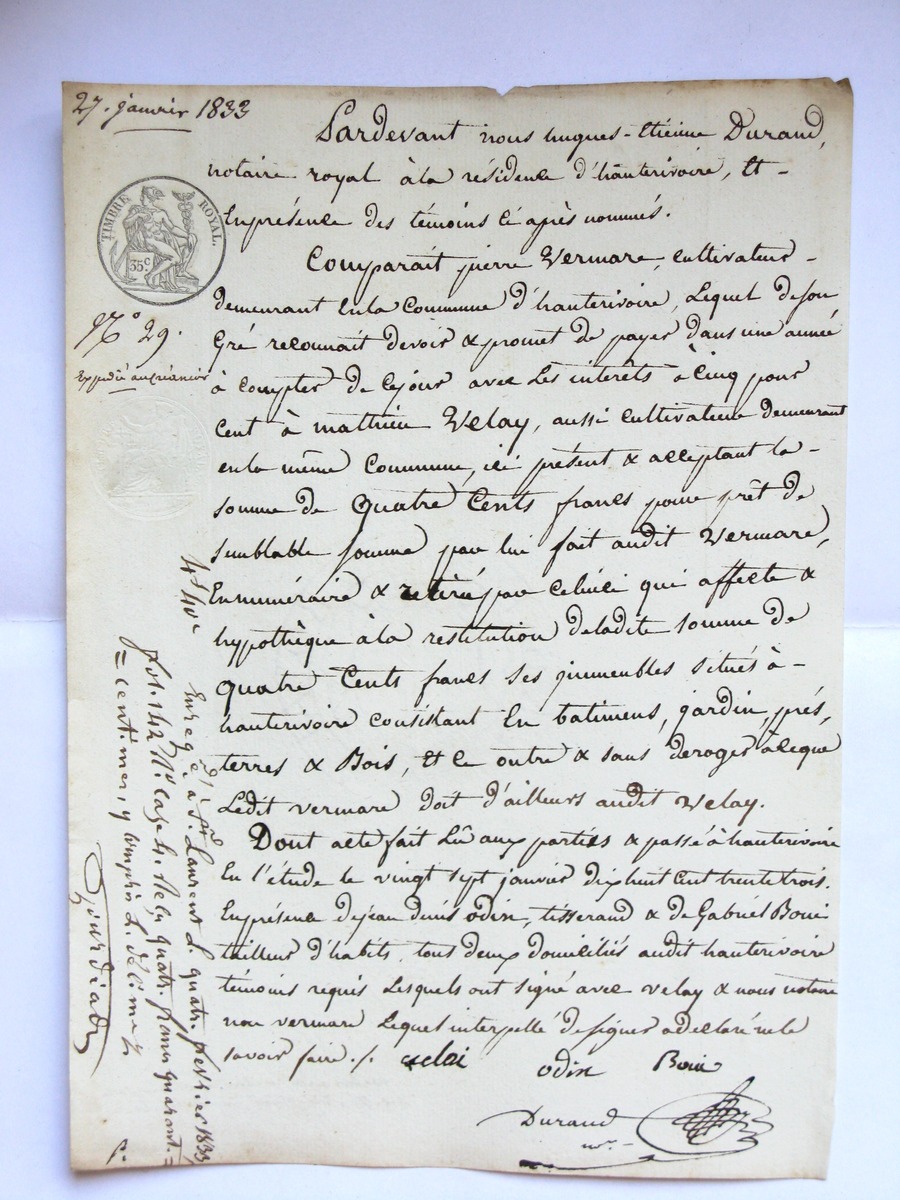 27. janvier 1833
TIMBRE ROYAL.
35c
No 29.
Expédié au créancier
Pardevant nous hugues-Etienne Durand,
notaire royal à la résidence d'hauterivoire, Et -
Enprésence des témoins ci après nommés.
Comparait pierre Vermare, cultivateur -
demeurant Enla Commune d'hauterivoire, Lequel deson
Gré reconnait devoir & promet de payer dans une année
à compter de cejour avec Les intérêts à Cinq pour
Cent à mathieu Velay, aussi cultivateur demeurant
enla même Commune, ici présent & acceptant la -
somme de quatre Cents francs pour prêt de
semblable somme par lui fait audit Vermare,
En numéraire & retiré par celuici qui affecte &
hypothèque à la restitution deladite somme de
quatre Cents francs ses immeubles situés à -
hauterivoire consistant En batimens, jardin, prés,
terres & Bois, Et ce outre & sans déroger àceque
Ledit vermare doit d'ailleurs audit Velay.
Dont acte fait Lû aux parties & passé à hauterivoire
En l'étude le vingt sept janvier dixhuit cent trente trois.
Enprésence dejean denis odin, tisserand & de Gabriel Boui
tailleur d'habits, tous deux domiciliés audit hauterivoire
témoins requis Lesquels ont signé avec velay & nous notaire
non vermare Lequel interpellé designer adéclaré nele
savoir faire ./. velai odin Boui
Durand
nre. -
4f 40c
Enregé. à St. Laurent L. quatre février 1833
fol. 142 Ro. case 4. Reçu quatre francs quarante
= centimes, y compris L. décime